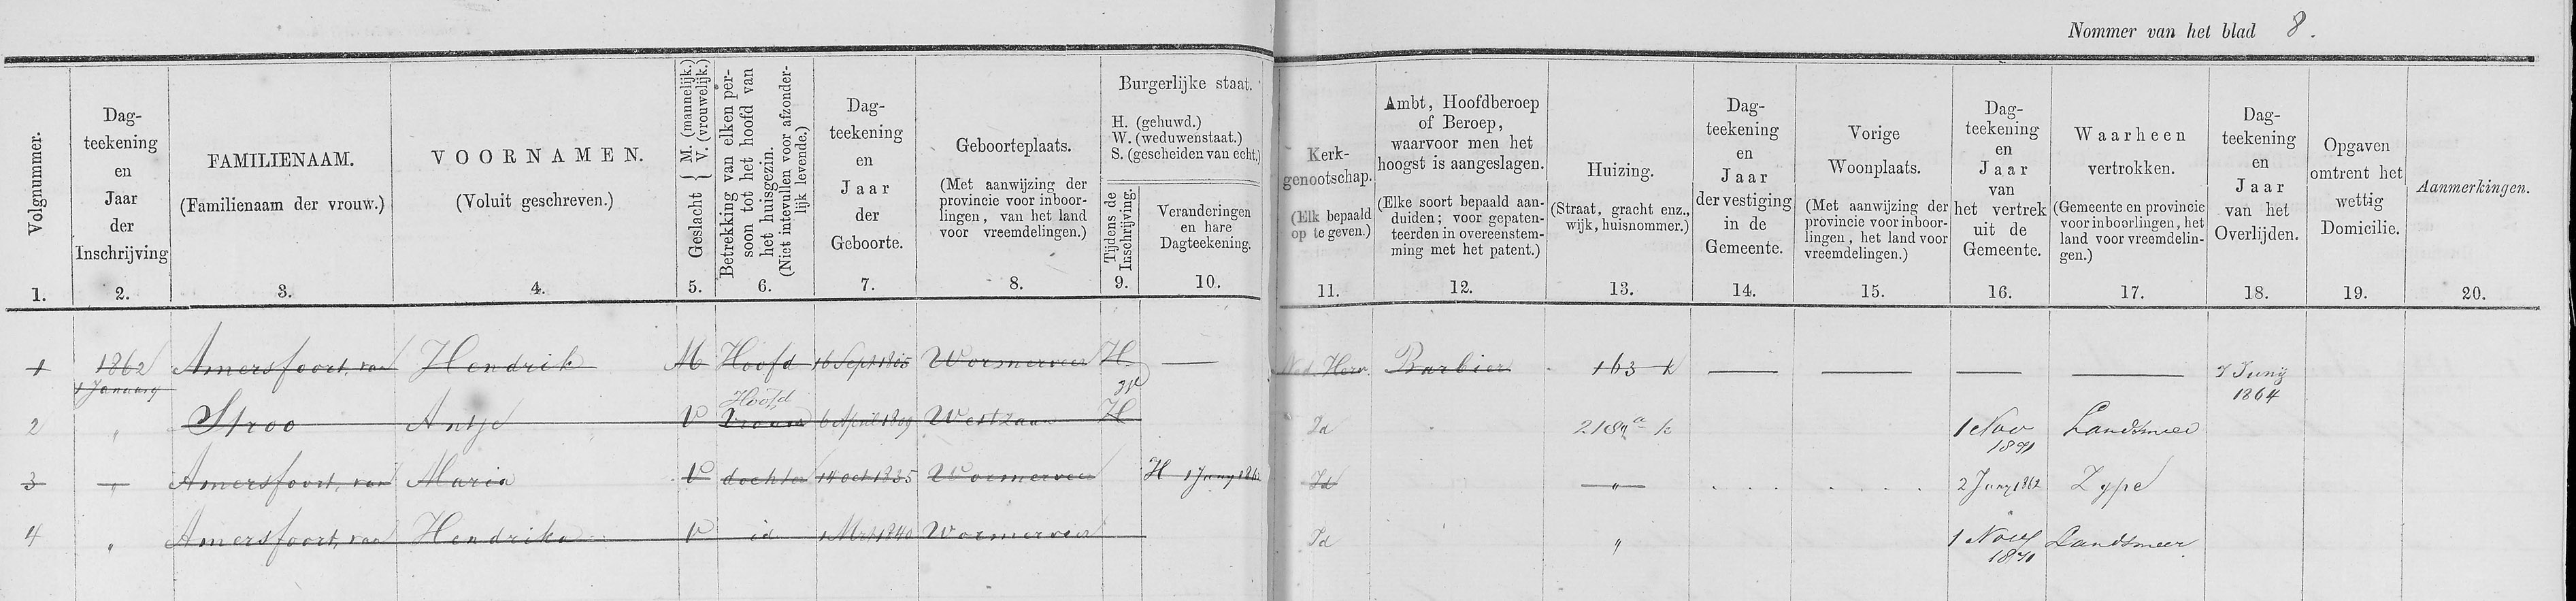 Nommer van het blad 8.
Volgnummer.
1.
Dag-
teekening
en
Jaar
der
Inschrijving
2.
FAMILIENAAM.
(Familienaam der vrouw.)
3.
VOORNAMEN.
(Voluit geschreven.)
4.
Geslacht { M. (mannelijk.)
V. (vrouwelijk.)
5.
Betrekking van elken per-
soon tot het hoofd van
het huisgezin.
(Niet intevullen voor afzonder-
lijk levende.)
6.
Dag-
teekening
en
Jaar
der
Geboorte.
7.
Geboorteplaats.
(Met aanwijzing der
provincie voor inboor-
lingen, van het land
voor vreemdelingen.)
8.
Burgerlijke staat.
H. (gehuwd.)
W. (weduwenstaat.)
S. (gescheiden van echt.)
Tijdens de
Inschrijving.
9.
Veranderingen
en hare
Dagteekening.
10.
Kerk-
genootschap.
(Elk bepaald
op te geven.)
11.
Ambt, Hoofdberoep
of Beroep,
waarvoor men het
hoogst is aangeslagen.
(Elke soort bepaald aan-
duiden; voor gepaten-
teerden in overeenstem-
ming met het patent.)
12.
Huizing.
(Straat, gracht enz.,
wijk, huisnommer.)
13.
Dag-
teekening
en
Jaar
der vestiging
in de
Gemeente.
14.
Vorige
Woonplaats.
(Met aanwijzing der
provincie voor inboor-
lingen, het land voor
vreemdelingen.)
15.
Dag-
teekening
en
Jaar
van
het vertrek
uit de
Gemeente.
16.
Waarheen
vertrokken.
(Gemeente en provincie
voor inboorlingen, het
land voor vreemdelin-
gen.)
17.
Dag-
teekening
en
Jaar
van het
Overlijden.
18.
Opgaven
omtrent het
wettig
Domicilie.
19.
Aanmerkingen.
20.
1 1862 Amersfoort, van Hendrik M Hoofd 16 Sept 1805 Wormerveer H. — Ned. Herv. Barbier 163 k — — — — 7 Junij
1 Januarij 1864
Hoofd W
2 " Stroo Antje V Vrouw 6 April 1809 Westzaan H Id 218 k 1 Nov Landsmeer
1871
3 " Amersfoort, van Maria V dochter 14 Oct 1835 Wormerveer H 1 Juny 1862 Id " 2 Juny 1862 Zype
4 " Amersfoort, van Hendrika V id 1 Mrt 1840 Wormerveer Id " 1 Nov Landsmeer
1871